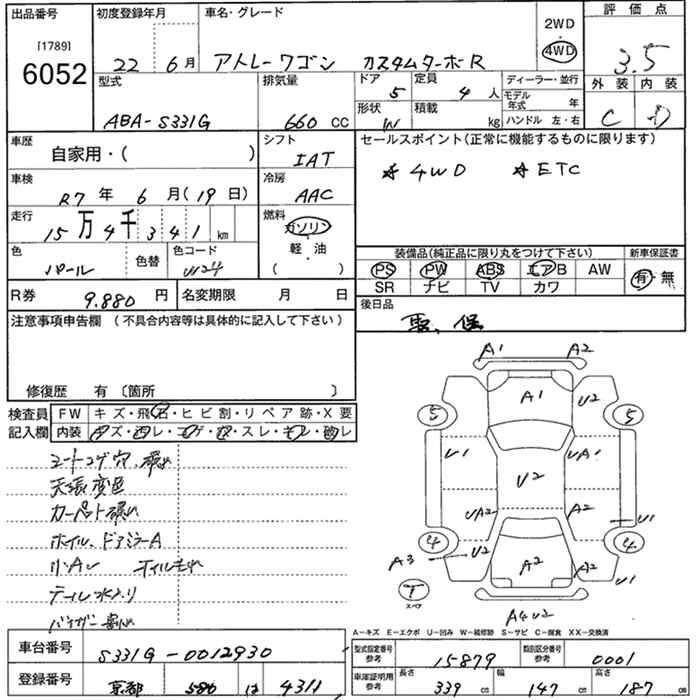 出品番号
[1789]
6052
初度登録年月
22年 6月
車名・グレード
アトレーワゴン カスタムターボR
2WD
・
4WD
評価点
3.5
外装 内装
C D
型式
ABA-S331G
排気量
660 CC
ドア 5
定員 4 人
形状 W
積載 kg
ディーラー・並行
モデル年式 年
ハンドル 左・右
車歴
自家用・( )
シフト
IAT
車検
R7 年 6 月(19日)
冷房
AAC
走行
15万4千341 km
燃料
ガソリン
・
軽・油
・
( )
色
パール
色替
色コード
W24
セールスポイント(正常に機能するものに限ります)
☆ 4WD ☆ ETC
装備品(純正品に限り丸をつけて下さい)
新車保証書
PS PW ABS エアB AW
SR ナビ TV カワ
有・無
R券 9.880 円
名変期限 月 日
後日品
注意事項申告欄 (不具合内容等は具体的に記入して下さい)
修復歴 有 〔箇所 〕
検査員記入欄
FW キズ・飛石・ヒビ割・リペア跡・X要
内装 キズ・凹レ・コゲ・穴・スレ・ヨレ・破レ
シートコゲ穴、破れ
天張変色
カーペット破れ
ホイル、ドアミラーA
小A
テール水入り
A1 A2
A1 U2
5 5
U1 UA1
U2
UA2 A2 U1
4 4
A3 U2 A2 A2
U1
T
スペア
A4 U2
A-キズ E-エクボ U-凹み W-補修跡 S-サビ C-腐食 XX-交換済
車台番号 S331G-0012930
型式指定番号 参考 15879
類別区分番号 参考 0001
登録番号 京都 580 は 4311
車庫証明用 参考
長さ 339 cm
幅 147 cm
高さ 187 cm